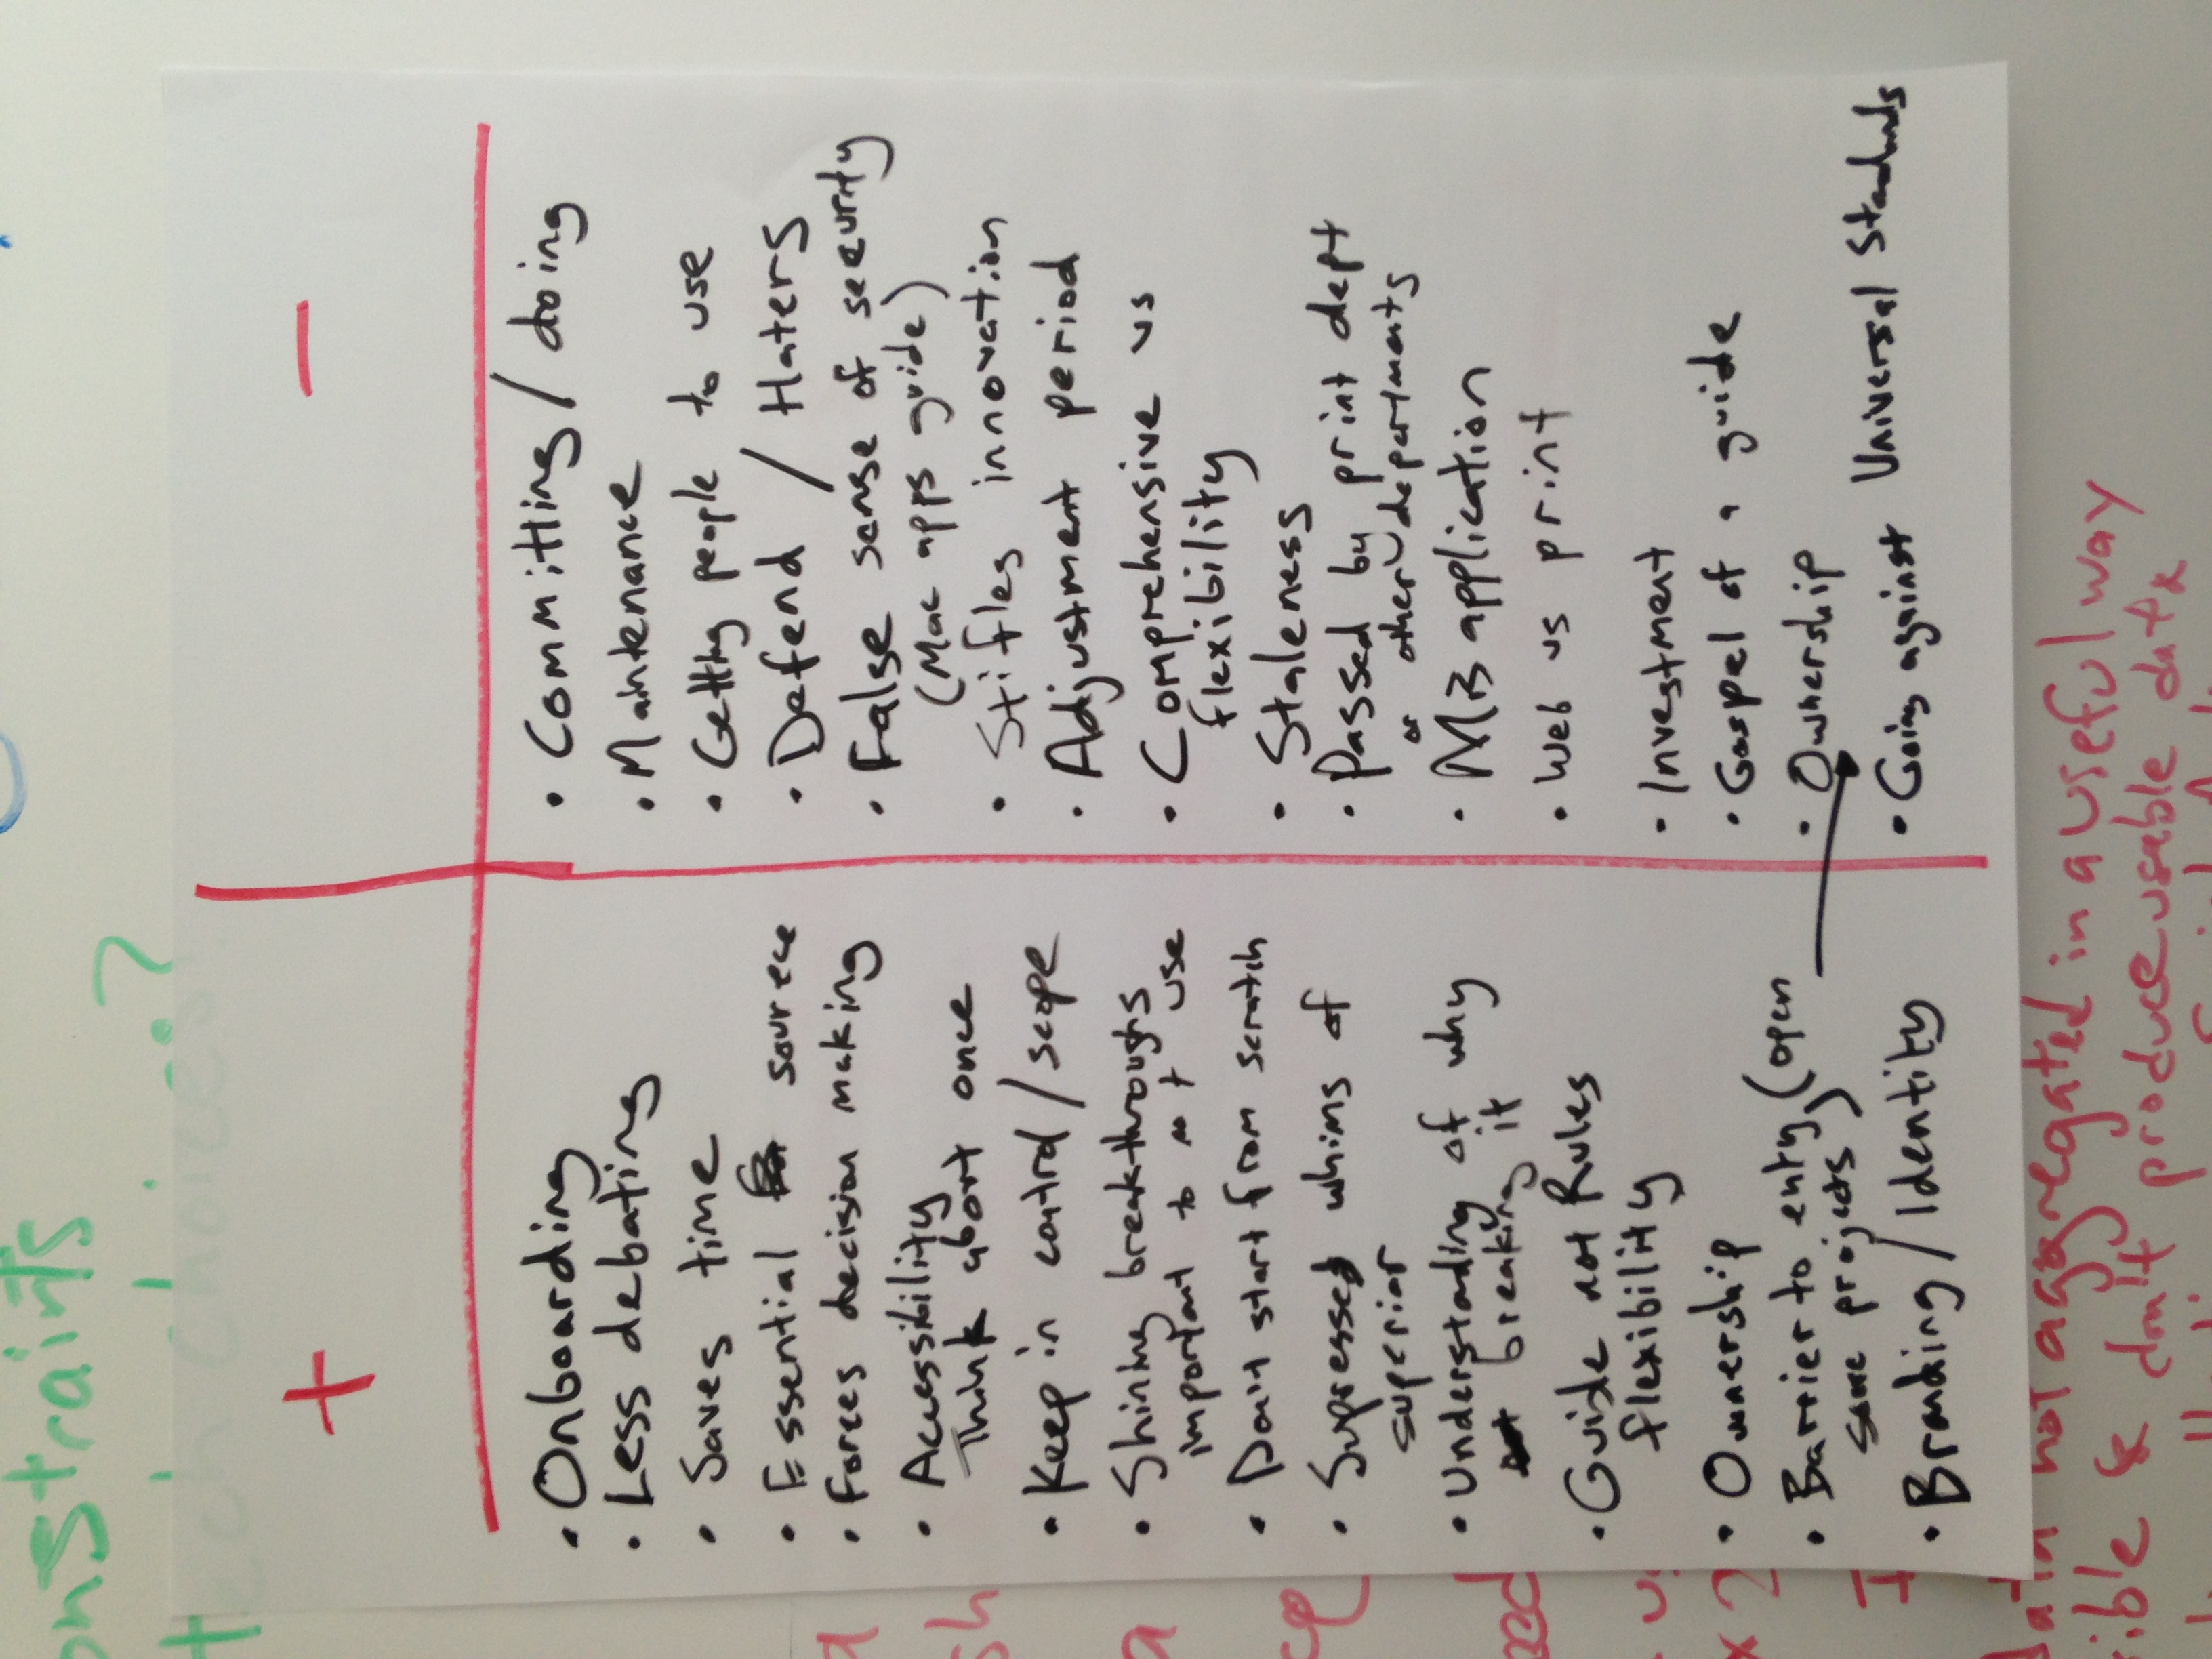 onstraints
tech choices?
+
• Onboarding
• Less debating
• Saves time
• Essential sourece
• Forces decision making
• Accessibility
Think abort once
• Keep in control / scope
• Shining breakthroughs
important to not use
• Don't start from scratch
• Supressed whims of
superior
• Understading of why
breaking it
• Guide not Rules
flexibility
• Ownership
• Barrier to enty (open
projects)
• Branding / Identity
–
• Committing / doing
• Maintenance
• Getting people to use
• Defend / Haters
• False sense of security
(Mac apps guide)
• Stifles innovation
• Adjustment period
• Comprehensive vs
flexibility
• Staleness
• Passed by print dept
or other departments
• application
• Web vs print
• Investment
• Gospel of a guide
• Ownership
• Going against Universal Standards
data not aggregated in a useful way
rible & don't produce usable data